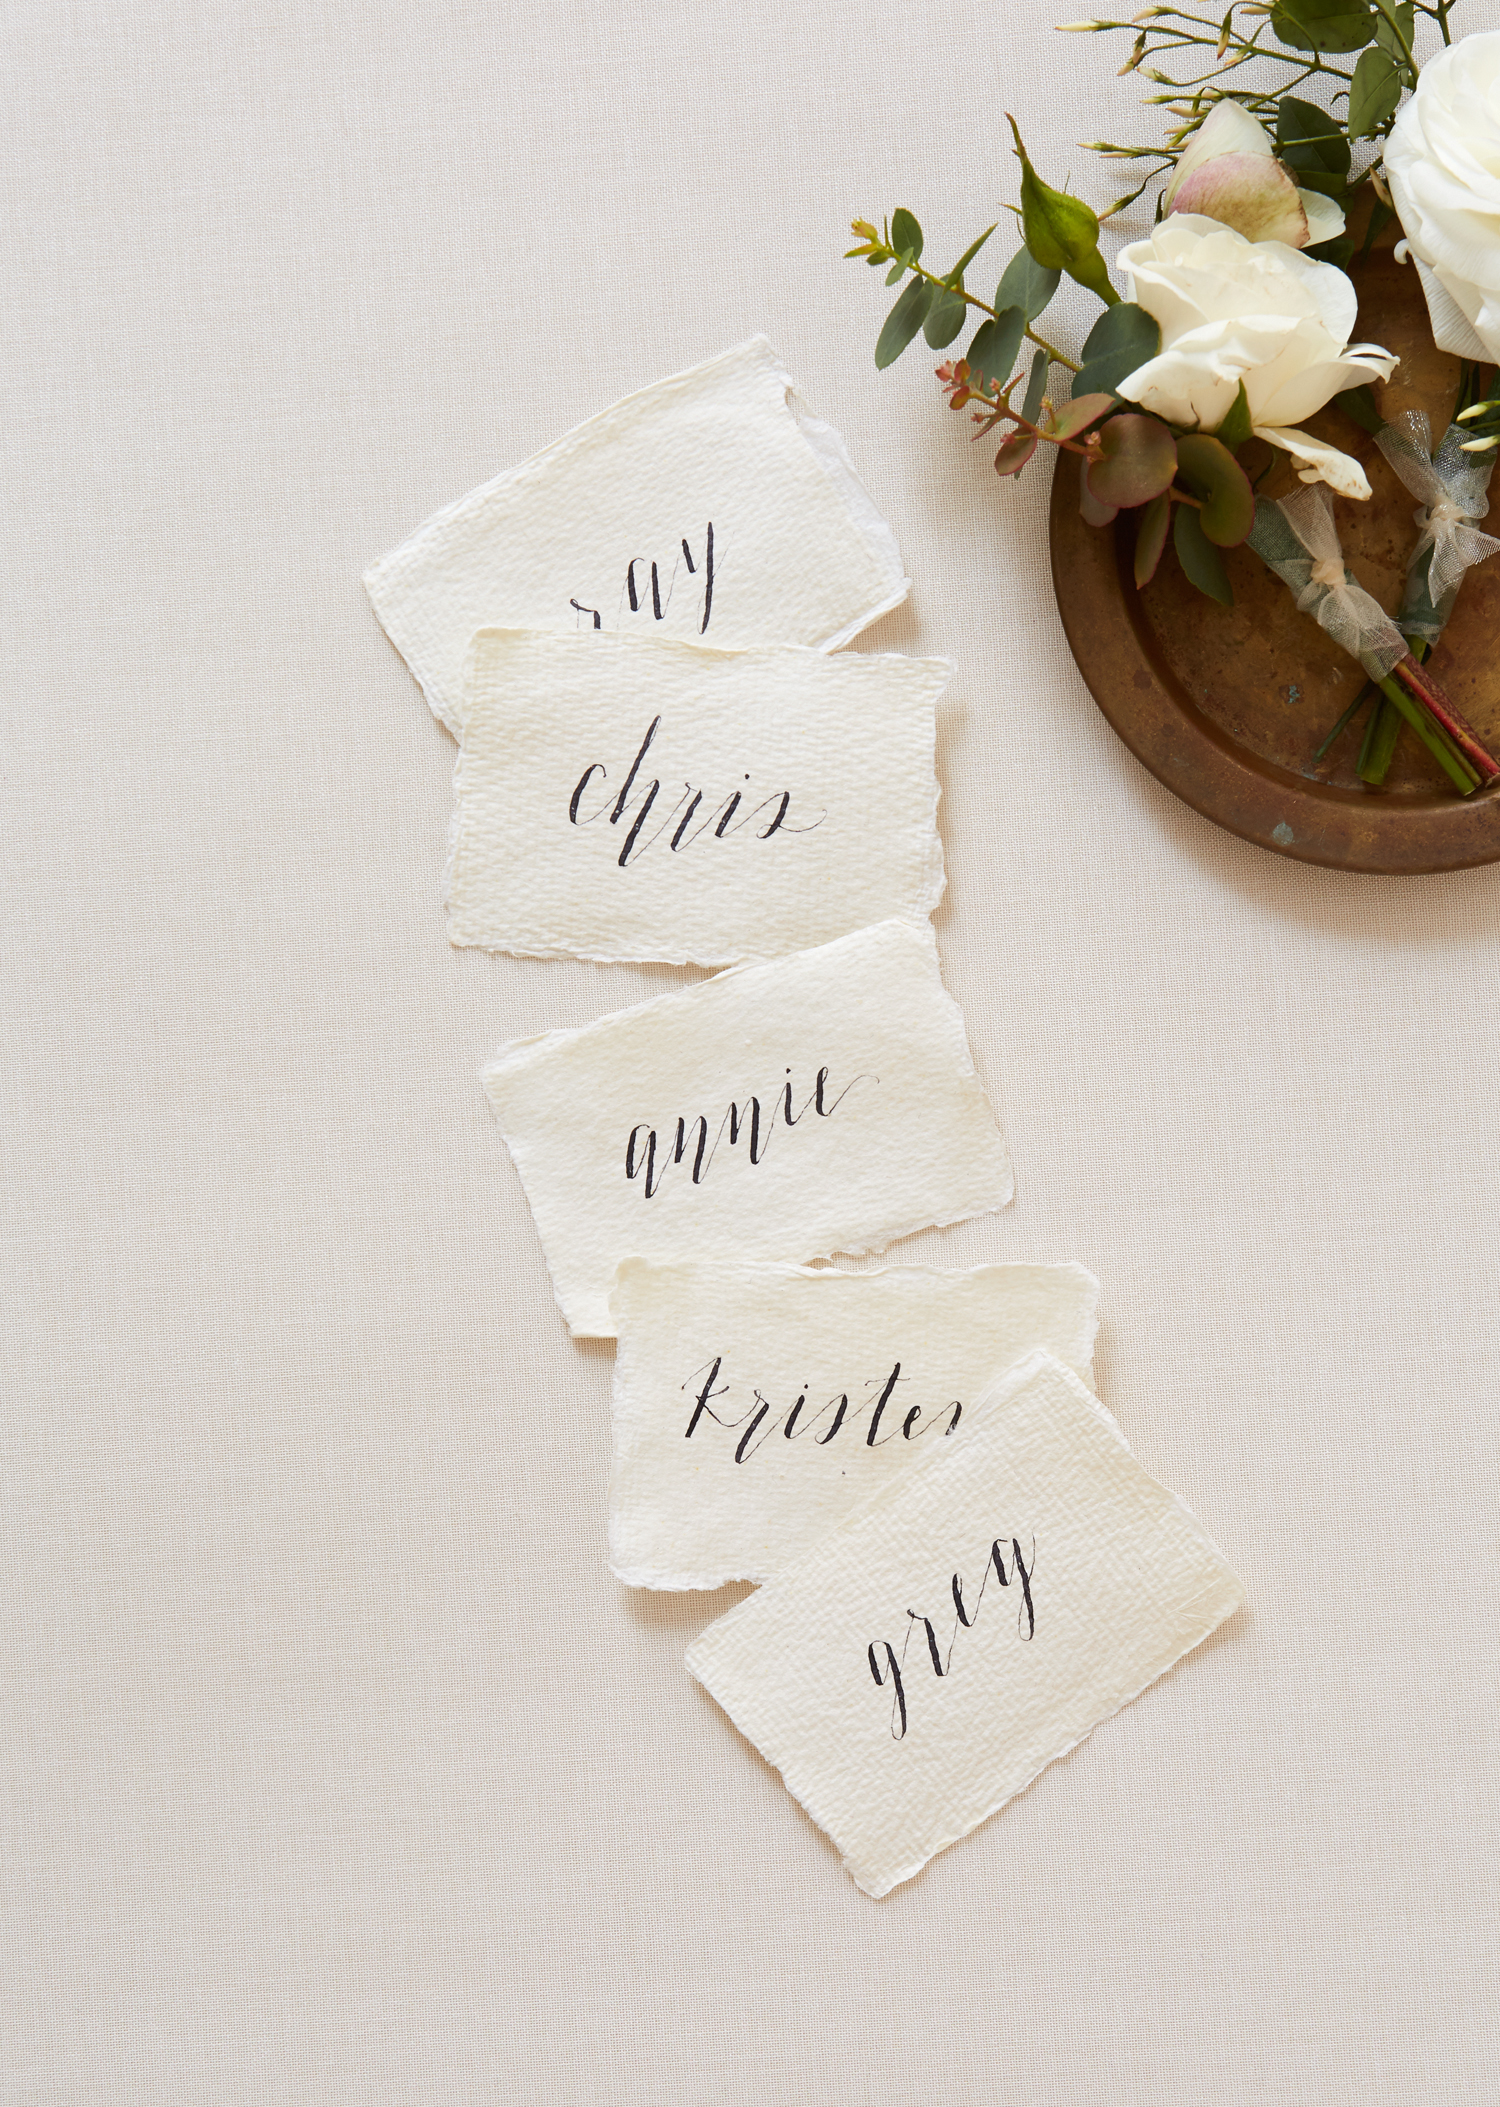 ray
chris
annie
kristen
greg